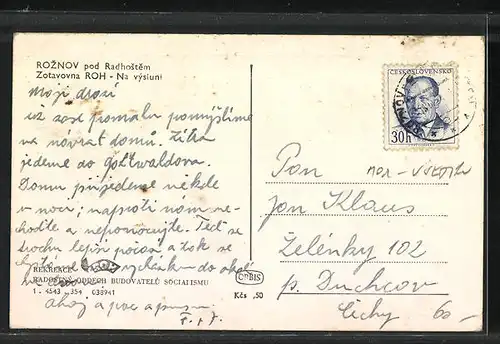 ROŽNOV pod Radhoštěm
Zotavovna ROH - Na výsluní
Moji drazí
už zase pomalu pomýšlíme
na návrat domů. Zítra
jedeme do gottwaldova.
Domu přijedeme někdy
v noci, naproti nám ne-
choďte a neponocujte. Teď se
trochu lepší počasí a tak se
do okolí
REKREACE
RADOSTNÝ ODDECH BUDOVATELŮ SOCIALISMU
1. 4543 354 038941
ahoj a
ORBIS
Kčs ,50
ČESKOSLOVENSKO
30h
Pan
Jan Klaus
Želénky 102
p. Duchcov
Čechy
60-